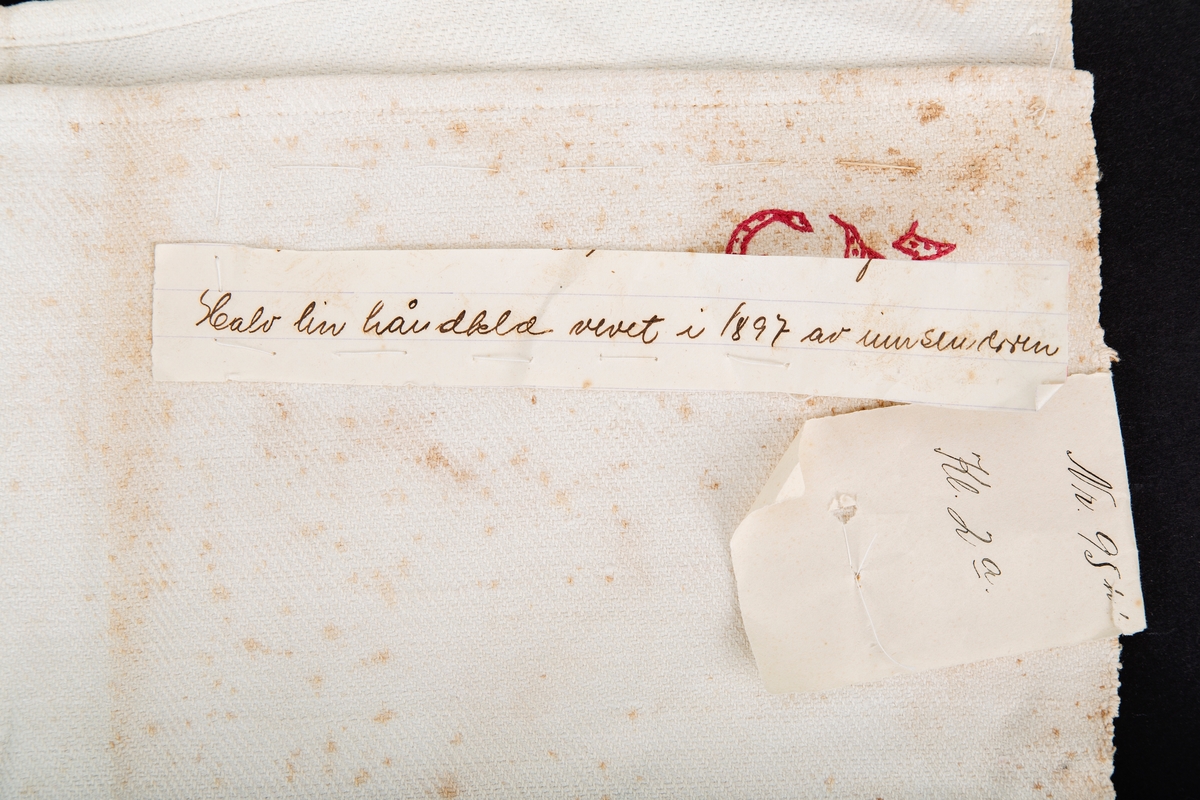 Halv lin håndklæ vevet i 1897 av innsenderen
Nr. 95
Kl. 2 a.